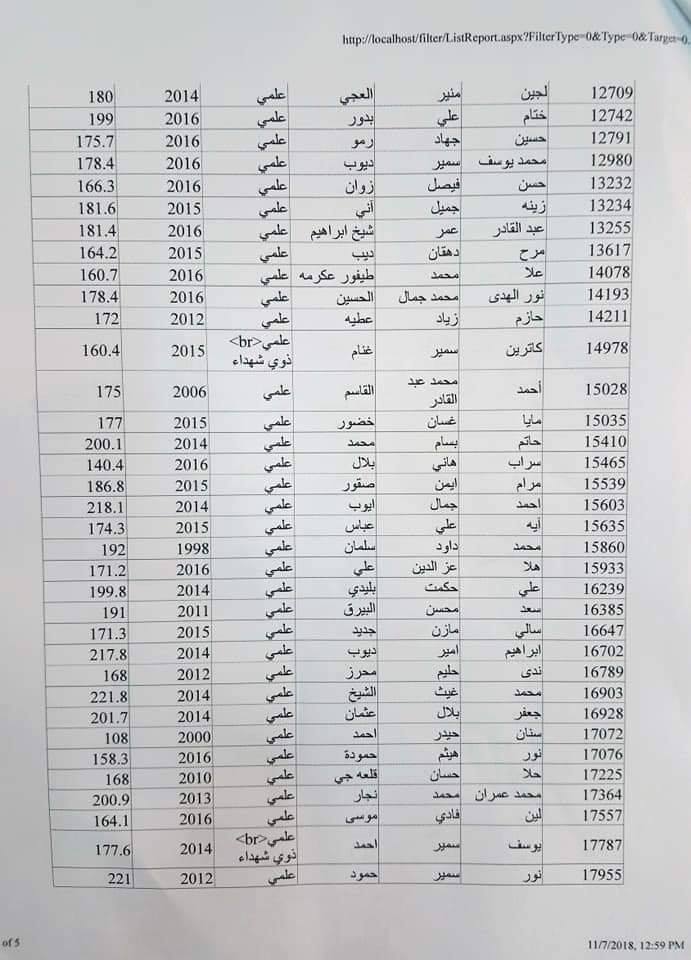 http://localhost/filter/ListReport.aspx?FilterType=0&Type=0&Target=0.
12709 لجين منير العجي علمي 2014 180
12742 ختام علي بدور علمي 2016 199
12791 حسين جهاد رمو علمي 2016 175.7
12980 محمد يوسف سمير ديوب علمي 2016 178.4
13232 حسن فيصل زوان علمي 2016 166.3
13234 زينه جميل آني علمي 2015 181.6
13255 عبد القادر عمر شيخ ابراهيم علمي 2016 181.4
13617 مرح دهقان ديب علمي 2015 164.2
14078 علا محمد طيفور عكرمه علمي 2016 160.7
14193 نور الهدى محمد جمال الحسين علمي 2016 178.4
14211 حازم زياد عطيه علمي 2012 172
علمي<br>
14978 كاترين سمير غنام ذوي شهداء 2015 160.4
محمد عبد
15028 أحمد القادر القاسم علمي 2006 175
15035 مايا غسان خضور علمي 2015 177
15410 حاتم بسام محمد علمي 2014 200.1
15465 سراب هاني بلال علمي 2016 140.4
15539 مرام ايمن صقور علمي 2015 186.8
15603 احمد جمال ايوب علمي 2014 218.1
15635 آيه علي عباس علمي 2015 174.3
15860 محمد داود سلمان علمي 1998 192
15933 هلا عز الدين علي علمي 2016 171.2
16239 علي حكمت بليدي علمي 2014 199.8
16385 سعد محسن البيرق علمي 2011 191
16647 سالي مازن جديد علمي 2015 171.3
16702 ابراهيم امير ديوب علمي 2014 217.8
16789 ندى حليم محرز علمي 2012 168
16903 محمد غيث الشيخ علمي 2014 221.8
16928 جعفر بلال عثمان علمي 2014 201.7
17072 سنان حيدر احمد علمي 2000 108
17076 نور هيثم حمودة علمي 2016 158.3
17225 حلا حسان قلعه جي علمي 2010 168
17364 محمد عمران محمد نجار علمي 2013 200.9
17557 لين فادي موسى علمي 2016 164.1
علمي<br>
17787 يوسف سمير احمد ذوي شهداء 2014 177.6
17955 نور سمير حمود علمي 2012 221
of 5
11/7/2018, 12:59 PM